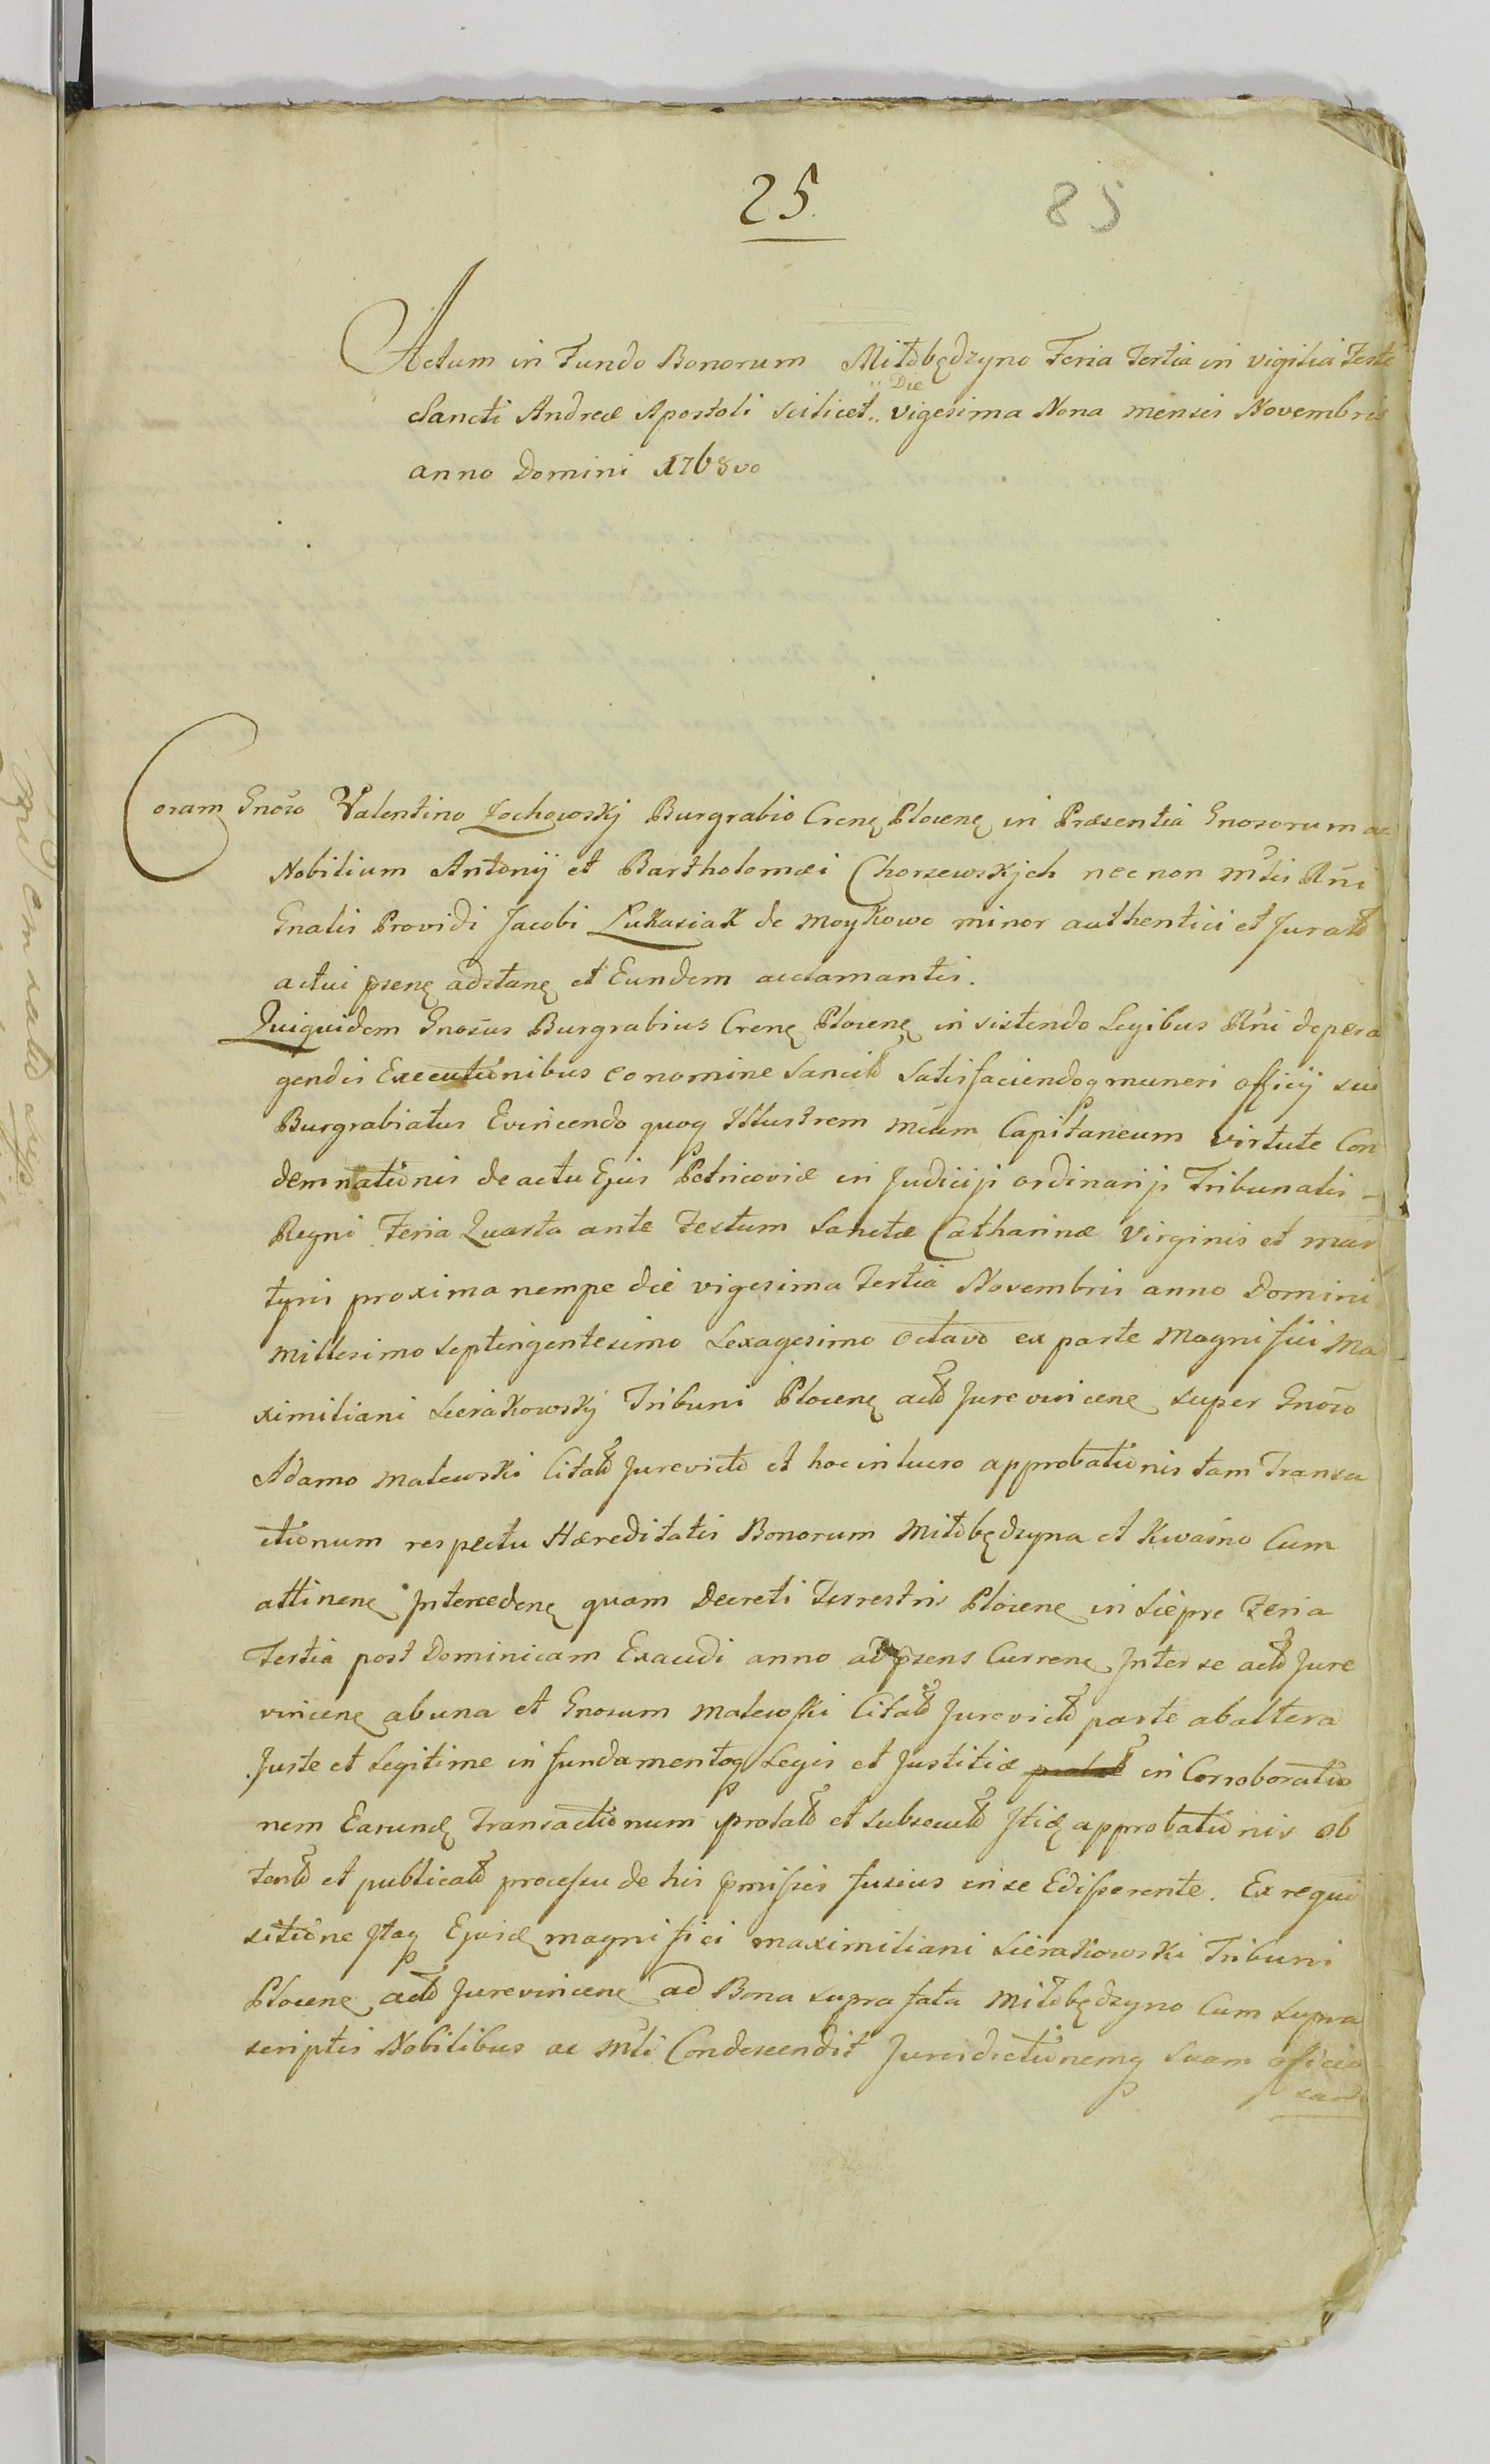 25.
85
Actum in Fundo Bonorum Miłobędzyno Feria Tertia in vigilia Feste
Die
Sancti Andreæ Apostoli scilicet.. vigesima Nona mensis Novembris
anno Domini 1768vo
Coram Gnoso Valentino Zochowskj Burgrabio Crenę Plocenę in Præsentia Gnosorum ac
Nobilium Antonij et Bartholomæi Chorzewskjch nec non mtis Rni
Gnalis Providi Jacobi Łukasiak de Moykowo minor authentici et Jurato
actui psenę adstanę et Eundem acclamantis.
Quiquidem Gnosus Burgrabius Crenę Plocenę in sistendo Legibus Rni de pera
gendis Executionibus eo nomine sancito satisfaciendoq muneri officij sui
Burgrabiatus Evincendo quoq Illustrem mcum Capitaneum virtute Con
demnationis de actu Ejus Petricoviæ in Judicijs ordinarijs Tribunalis
Regni Feria Quarta ante Festum Sanctæ Catharinæ Virginis et mar
tyris proxima nempe die vigesima Tertia Novembris anno Domini
millesimo septingentesimo sexagesimo octavo ex parte Magnifici Ma
ximiliani Sierakowskj Tribuni Plocenę acto Jurevincenę super Gnoso
Adamo Malewski Citato Jurevicto et hoc in lucro approbationis tam Transa
ctionum respectu Hæreditatis Bonorum Miłobędzyna et Kwaśno Cum
attinenę Intercedenę quam Decreti Terrestris Plocenę in Siepre Feria
Tertia post Dominicam Exaudi anno ad psens Currenę Inter se acto Jure
vincenę ab una et Gnosum Malewski Citato Jurevicto parte ab altera
Juste et Legitime in fundamentoq Legis et Justitiæ in Corroboratio
nem Earundę Transactionum prolato et subsecuto Itidę approbationis ob
tento et publicato processu de his pmissis fusius in se Edisserente. Ex requi
sitione Itaq Ejusdę magnifici maximiliani Sierakowski Tribuni
Plocenę acto Jurevincenę ad Bona supra fata Miłobędzyno Cum supra
scriptis Nobilibus ac mli Condescendit Jurisdictionemq suam officio
sam